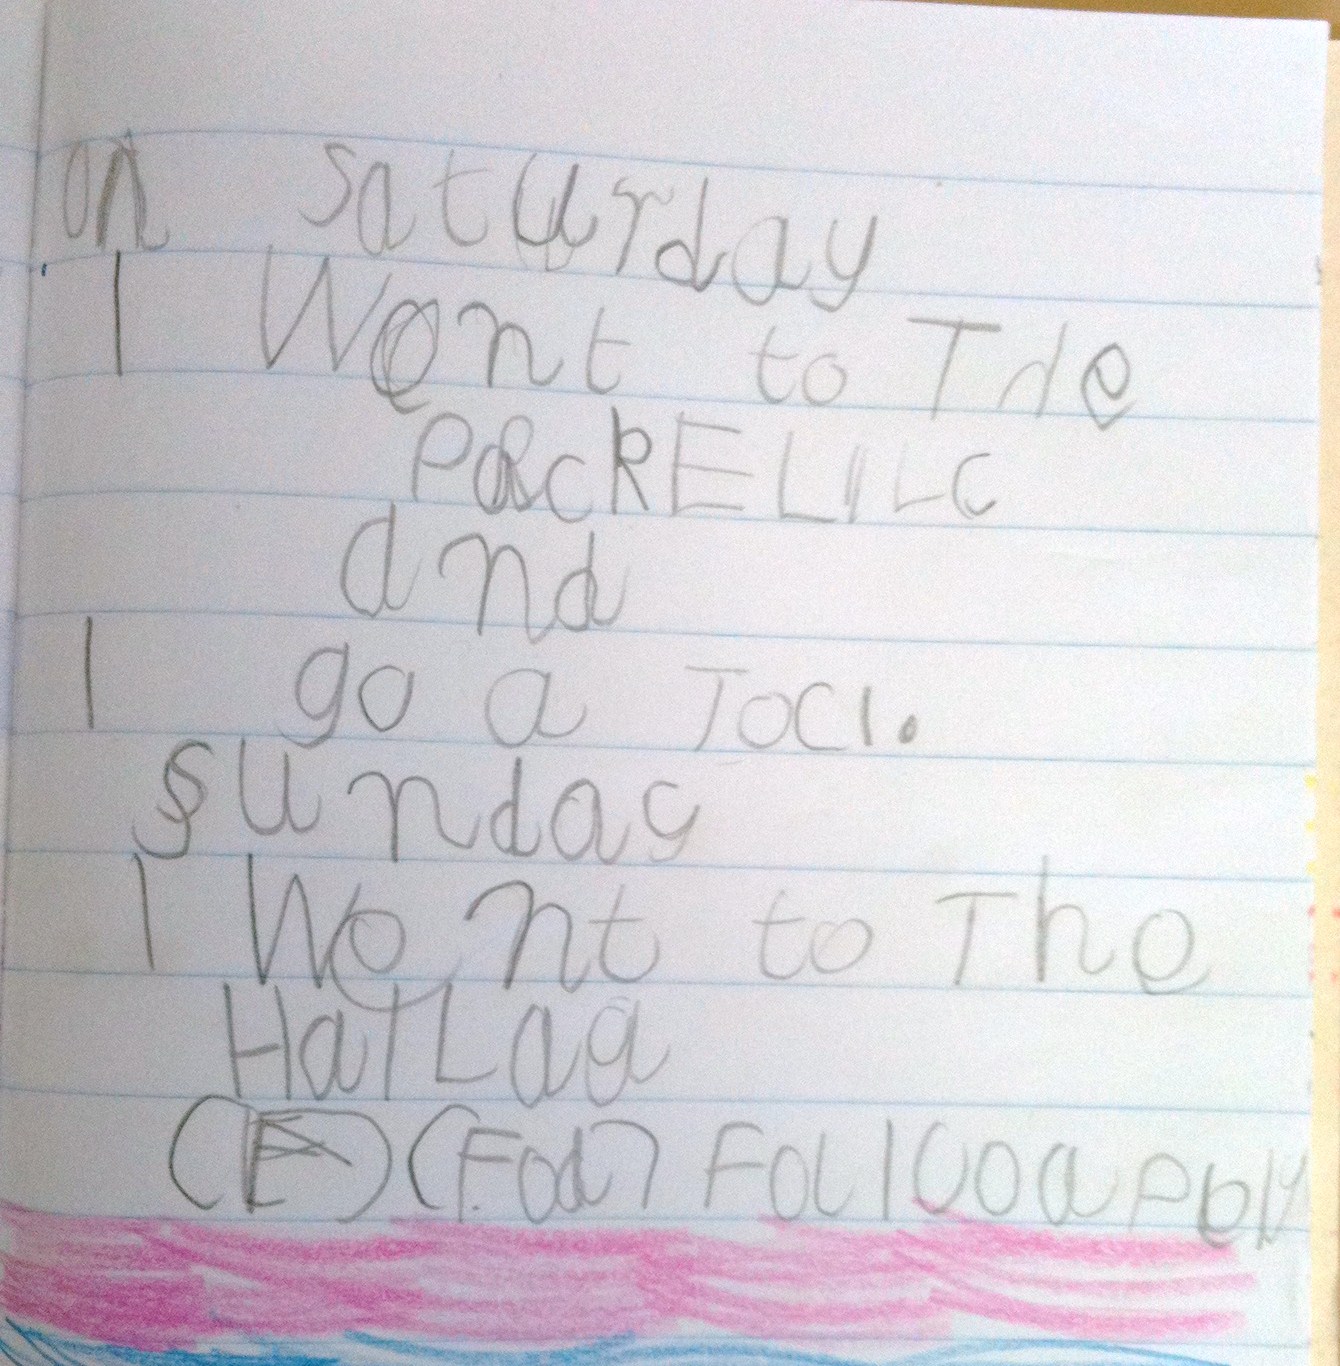 on saturday
I Went to The
PacKELILC
and
I go a TOCI.
sunday
I Went to The
HatLag
(E) (Fod)